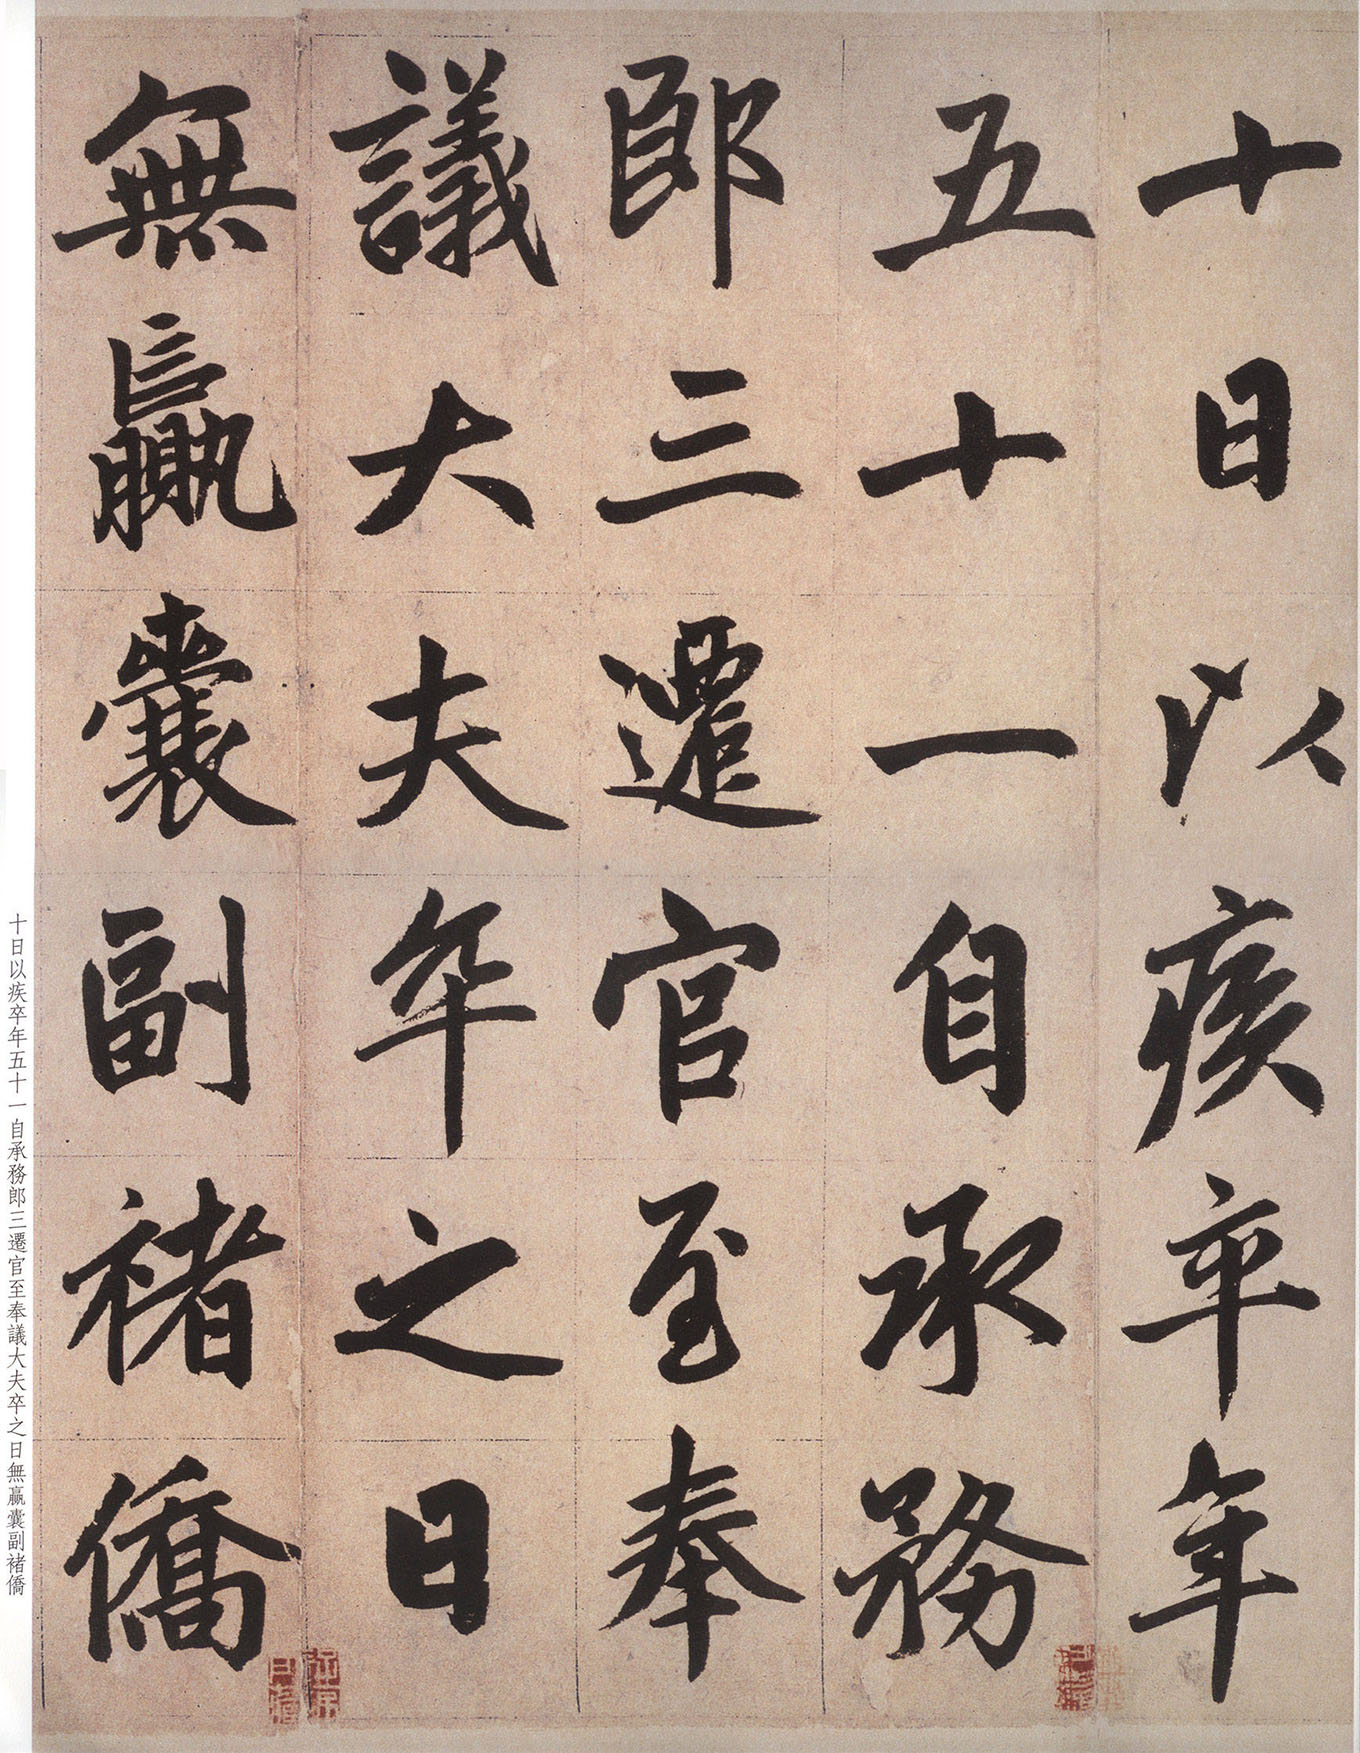 十日以疾卒年
五十一自承務
郎三遷官至奉
議大夫卒之日
無贏囊副褚僑
十日以疾卒年五十一自承務郎三遷官至奉議大夫卒之日無贏囊副褚僑